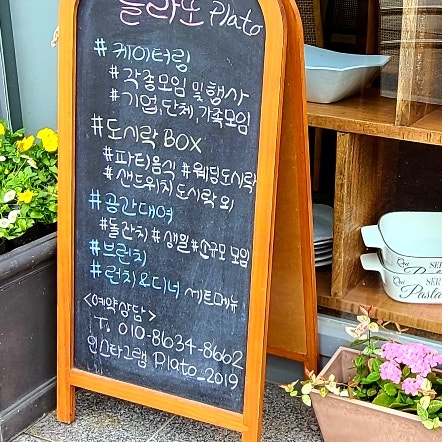 플라또 Plato
#케이터링
#각종모임 및 행사
#기업,단체,가족모임
#도시락 BOX
#파티음식 #웨딩도시락
#샌드위치 도시락 외
#공간대여
#돌잔치 #생일 #소규모 모임
#브런치
#런치&디너 세트메뉴
<예약상담>
T. 010-8634-8662
인스타그램 Plato_2019
SER
Pasta
SER
Pasta